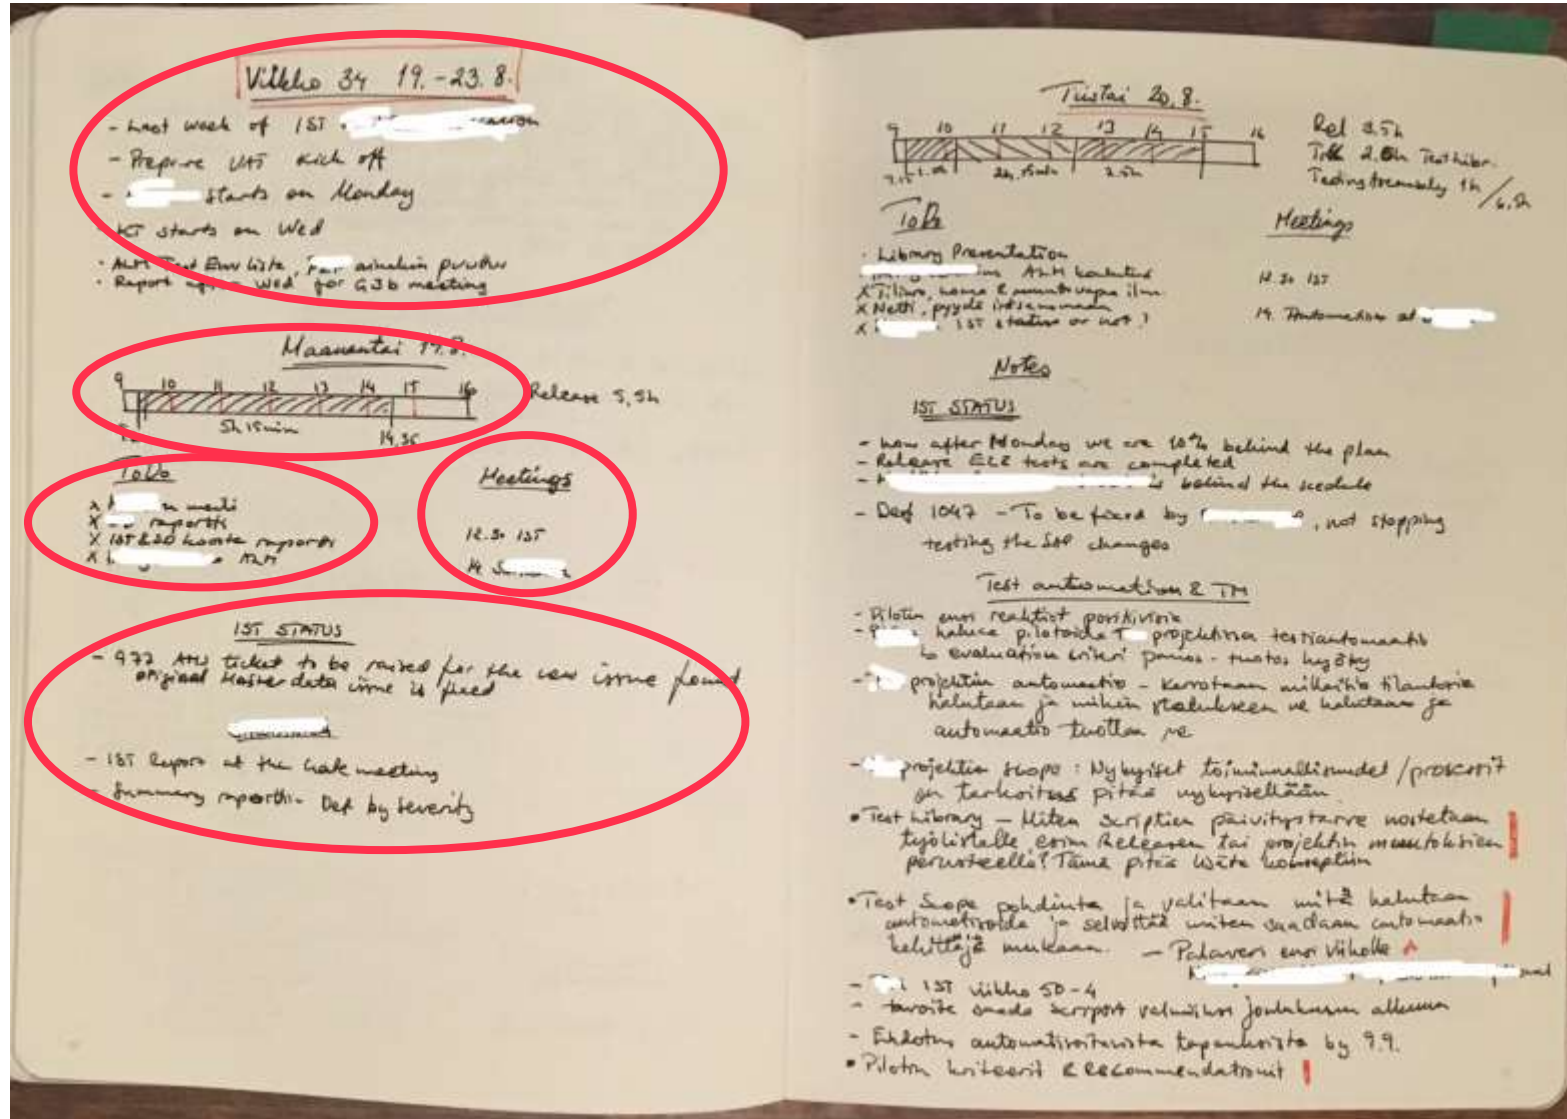 Viikko 34 19.-23.8.
- Last week of IST
- Prepare UAT kick off
- starts on Monday
- KT starts on Wed
- ALM Test Env lista, puuttuu
- Report after Wed for G3b meeting
Maanantai 19.8.
9 10 11 12 13 14 15 16
Release 5,5h
5h 15min
14.35
ToDo
Meetings
x meili
x raportti
x IST & SD kooste raportti
x ALM
12.30 IST
14
IST STATUS
- 977 ticket to be raised for the new issue found
original Masterdata issue is fixed
- IST Report at the Gate meeting
- Summary raportti - Def by Severity
Tiistai 20.8.
9 10 11 12 13 14 15 16
Rel 3.5h
2h 15min 2.5h
Testing 1h
ToDo
Meetings
- Library Presentation
ALM
x IST status or not?
12.30 IST
14. Automation at
Notes
IST STATUS
- Now after Monday we are 10% behind the plan
- Release E2E tests are completed
- is behind the scedule
- Def 1047 - To be fixed by , not stopping
testing the SAP changes
Test automation & TM
- Pilotin ensi reaktiot positiivisia
- haluaa pilotoida projektissa testiautomaatio
evaluation kriteeri panos - tuotos hyöty
- projektin automaatio - Kerrotaan millaisia tilauksia
halutaan ja mihin statukseen ne halutaan ja
automaatio tuottaa ne
- projektin scope: Nykyiset toiminnallisuudet / prosessit
on tarkoitus pitää nykyisellään
• Test Library - Miten scriptien päivitystarve nostetaan
työlistalle esim Releasen tai projektin muutoksien
perusteella? Tämä pitää lisätä konseptiin
• Test Scope pohdinta ja valitaan mitä halutaan
automatisoida ja selvittää miten saadaan automaatio
kehittäjä mukaan. - Palaveri ensi viikolle
- IST viikko 50-4
- tavoite saada scriptit valmiiksi joulukuun alkuun
- Ehdotus automatisoitavista tapauksista by 9.9.
• Pilotin kriteerit & recommendationit